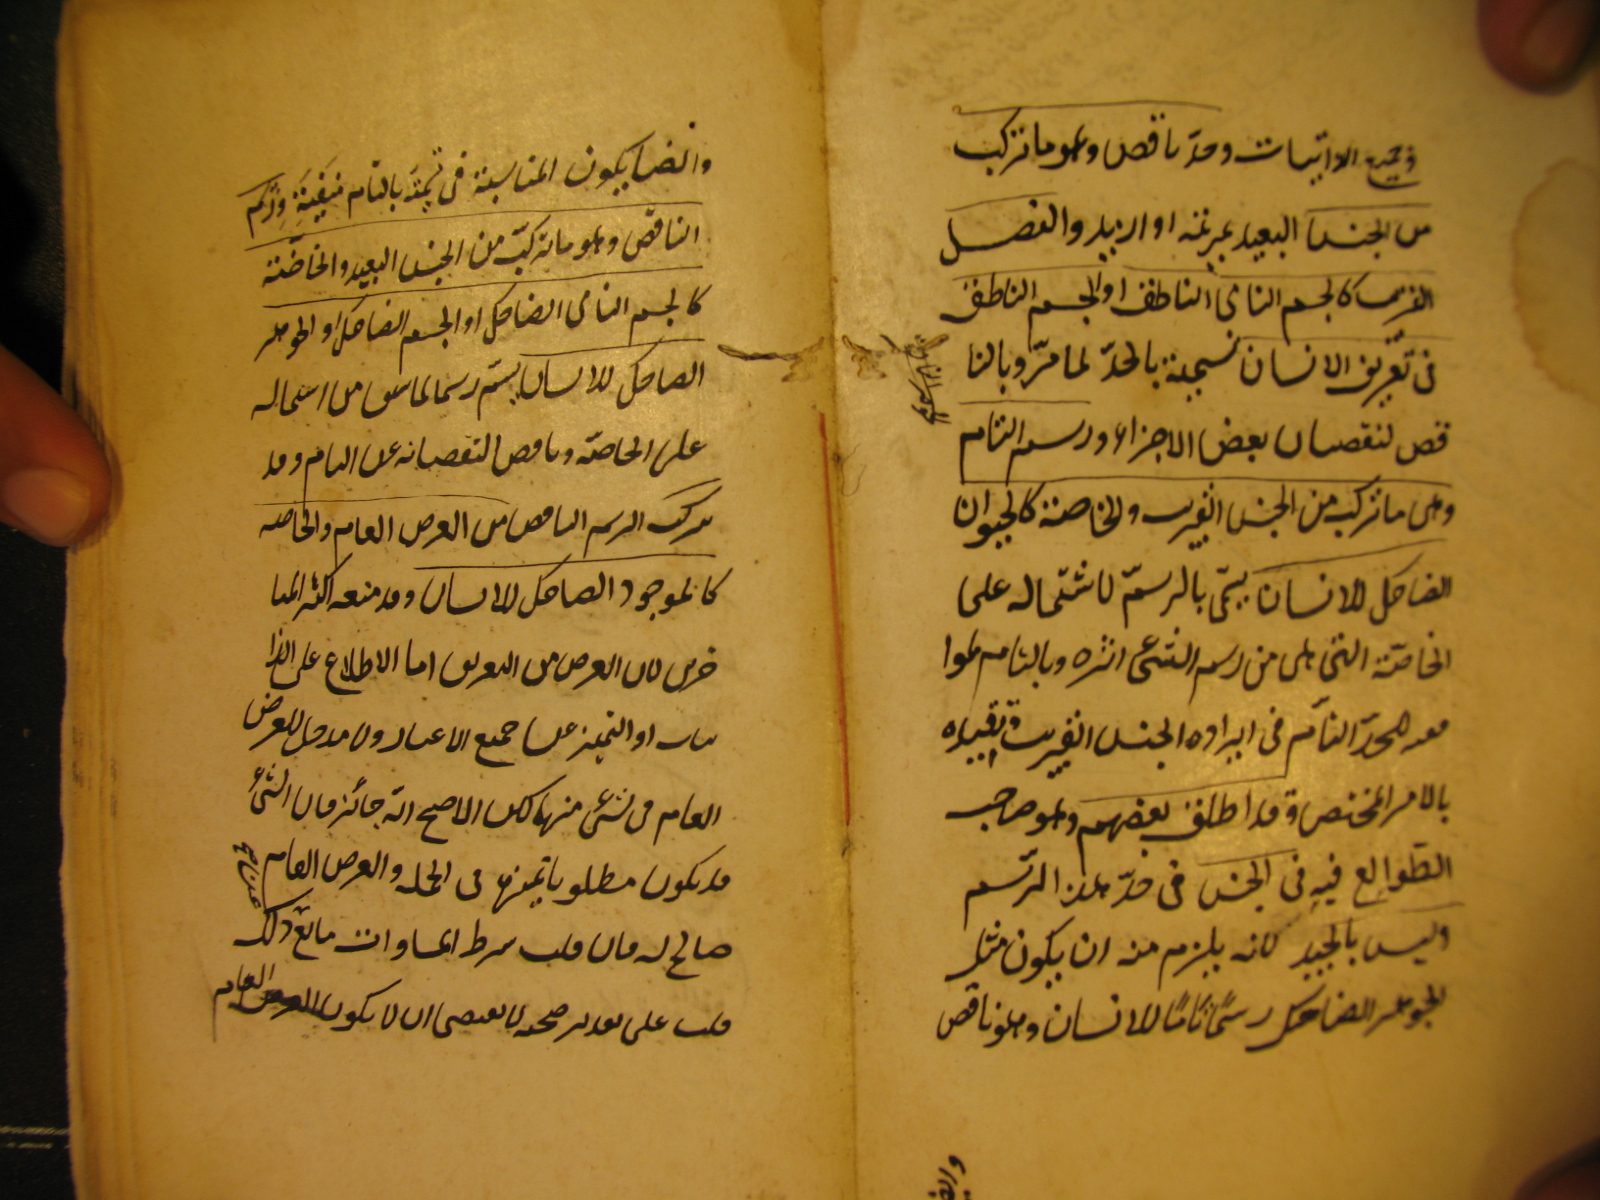 وجميع الذاتيات وحدّ ناقص وهو ما تركب
من الجنس البعيد بمرتبة او ازيد والفصل
القريب كالجسم النامى الناطق او الجسم الناطق
فى تعريف الانسان تسميته بالحدّ لما مرّ وبالنا
قص لنقصان بعض الاجزاء ورسم التام
وهى ما تركب من الجنس القريب والخاصة كالحيوان
الضاحك للانسان يسمّى بالرسمّ لاشتماله على
الخاصّة التى هى من رسم الشئ اثره وبالتام لموا
فقته للحدّ التامّ فى ايراده الجنس القريب تقييده
بالامر المختص وقد اطلق بعضهم وهو صاحب
الطّوالع فيه فى الجنس فى حدّ هذا الرّسم
وليس بالجيد لانه يلزم منه ان يكون مثل
الجوهر الضاحك رسمًا تامًا للانسان وهو ناقص
وايضا يكون المناسبة فى تسميته بالتام منتفية ورسم
الناقص وهو ما تركبّ من الجنس البعيد والخاصّة
كالجسم النامى الضاحك او الجسم الضاحك او الجوهر
الضاحك للانسان يسمّ رسما لما سبق من اشتماله
على الخاصّة وناقص النقصانه عن التام وقد
يتركب الرسم الناقص من العرض العام والخاصه
كالموجود الضاحك للانسان وقد منعه اكثر المتا
خرين لان الغرض من التعريف اما الاطلاع على الذا
تيات او التميز عن جميع الاغيار ولا مدخل للعرض
العام فى شئ منها لكن الاصح انه جائز فان الشئ
قد يكون مطلوبا تميزه فى الجمله والعرض العام
صالح له فان قلت شرط المساوات مانع ذلك
قلت على تقدير صحته لا يقتضى ان لا يكون العرض العام